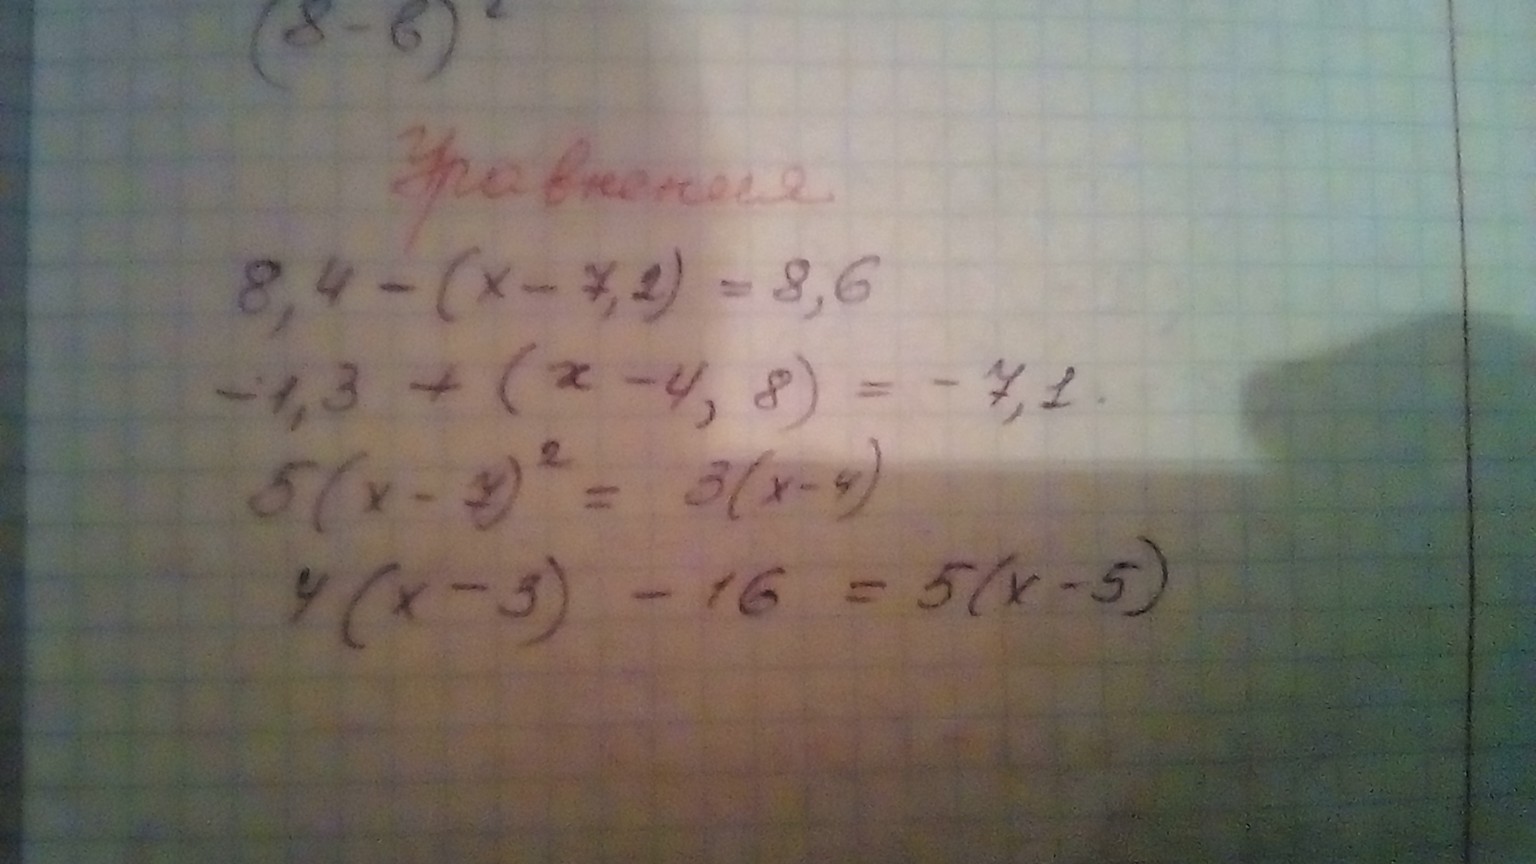 (8-в)²
Уравнения
8,4 - (x - 7,2) = 8,6
-1,3 + (x - 4, 8) = - 7,1.
5(x - 7)² = 3(x-4)
4(x - 3) - 16 = 5(x-5)